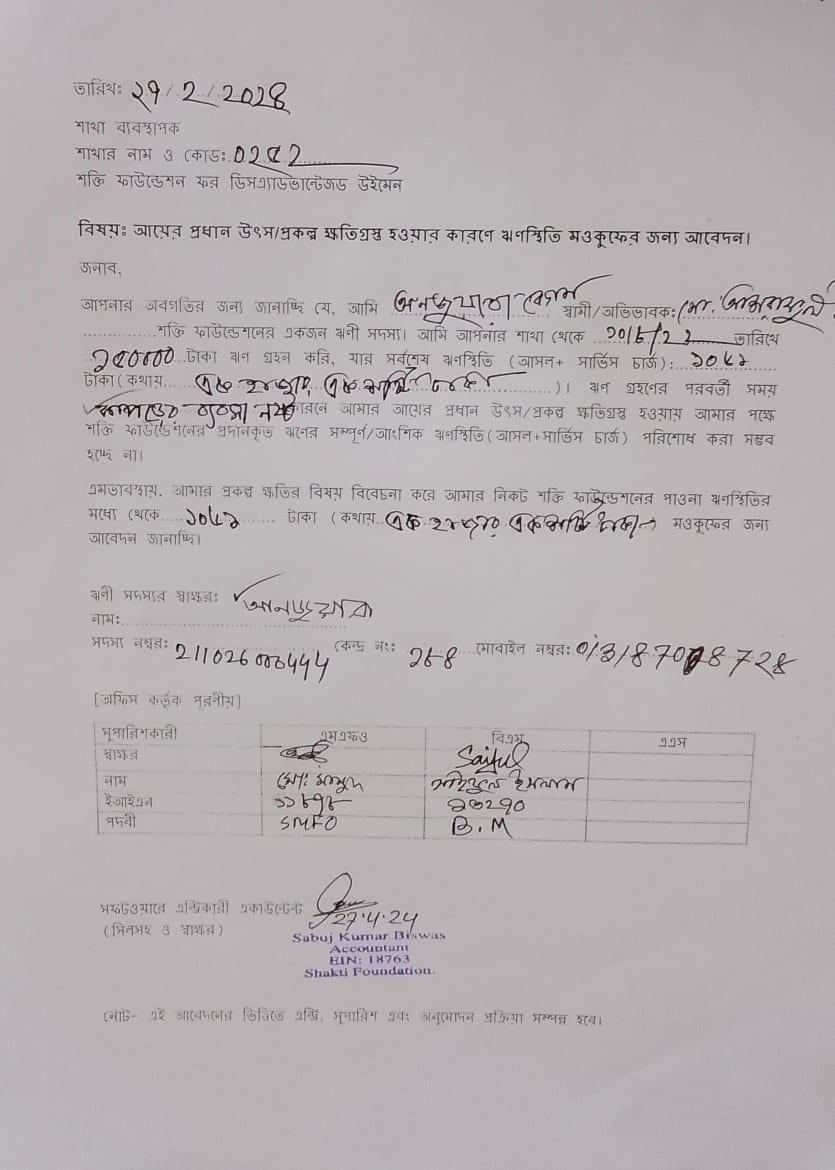 তারিখঃ ২৭/2/2028
শাখা ব্যবস্থাপক
শাখার নাম ও কোডঃ 0252
শক্তি ফাউন্ডেশন ফর ডিসএ্যাডভান্টেজড উইমেন
বিষয়ঃ আয়ের প্রধান উৎস/প্রকল্প ক্ষতিগ্রস্থ হওয়ার কারণে ঋণস্থিতি মওকুফের জন্য আবেদন।
জনাব,
আপনার অবগতির জন্য জানাচ্ছি যে, আমি আনজুয়ারা বেগম স্বামী/অভিভাবক: মো.
শক্তি ফাউন্ডেশনের একজন ঋণী সদস্য। আমি আপনার শাখা থেকে তারিখে
টাকা ঋণ গ্রহন করি, যার সর্বশেষ ঋণস্থিতি (আসল+ সার্ভিস চার্জ):
টাকা (কথায় এক হাজার )। ঋণ গ্রহণের পরবর্তী সময়
কাপড়ের ব্যবসা কারনে আমার আয়ের প্রধান উৎস/প্রকল্প ক্ষতিগ্রস্থ হওয়ায় আমার পক্ষে
শক্তি ফাউন্ডেশনের প্রদানকৃত ঋণের সম্পূর্ণ/আংশিক ঋণস্থিতি(আসল+সার্ভিস চার্জ) পরিশোধ করা সম্ভব
হচ্ছে না।
এমতাবস্থায়, আমার প্রকল্প ক্ষতির বিষয় বিবেচনা করে আমার নিকট শক্তি ফাউন্ডেশনের পাওনা ঋণস্থিতির
মধ্যে থেকে টাকা (কথায় এক হাজার মওকুফের জন্য
আবেদন জানাচ্ছি।
ঋণী সদস্যর স্বাক্ষরঃ আনজুয়ারা
নাম:
সদস্য নম্বরঃ কেন্দ্র নং: মোবাইল নম্বরঃ
[অফিস কর্তৃক পূরণীয়]
সুপারিশকারী এমএফও বিএম এএস
স্বাক্ষর Saiful
নাম মোঃ মাসুদ সাইফুল ইসলাম
ইআইএন
পদবী SMFO B.M
সফটওয়ারে এন্ট্রিকারী একাউন্টেন্ট 27.4.24
(সিলসহ ও স্বাক্ষর)
Sabuj Kumar Biswas
Accountant
EIN: 18763
Shakti Foundation.
নোট- এই আবেদনের ভিত্তিতে এন্ট্রি, সুপারিশ এবং অনুমোদন প্রক্রিয়া সম্পন্ন হবে।